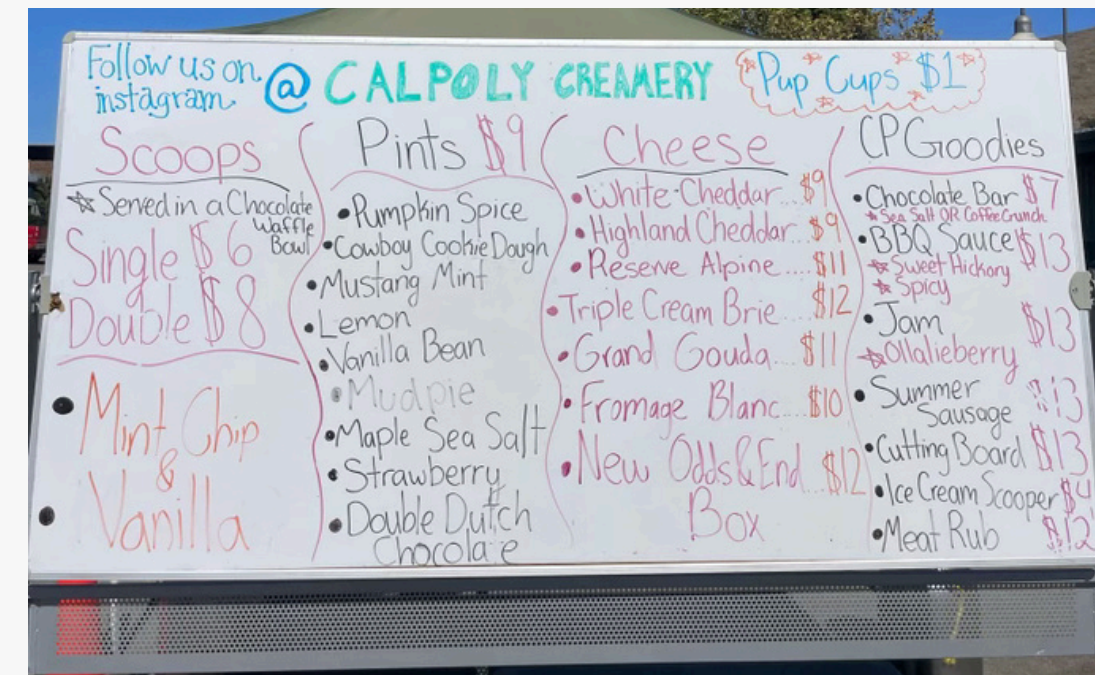 Follow us on
instagram @ CALPOLY CREAMERY
Pup Cups $1
Scoops
Served in a Chocolate
Waffle
Bowl
Single $6
Double $8
Mint Chip
&
Vanilla
Pints $9
• Pumpkin Spice
• Cowboy Cookie Dough
• Mustang Mint
• Lemon
• Vanilla Bean
• Mudpie
• Maple Sea Salt
• Strawberry
• Double Dutch
Chocolate
Cheese
• White Cheddar $9
• Highland Cheddar... $9
• Reserve Alpine.... $11
• Triple Cream Brie $12
• Grand Gouda... $11
• Fromage Blanc... $10
• New Odds & End... $12
Box
CP Goodies
• Chocolate Bar $7
Sea Salt OR Coffee Crunch
• BBQ Sauce $13
Sweet Hickory
Spicy
• Jam $13
Ollalieberry
• Summer
Sausage $13
• Cutting Board $13
• Ice Cream Scooper $4
• Meat Rub $12